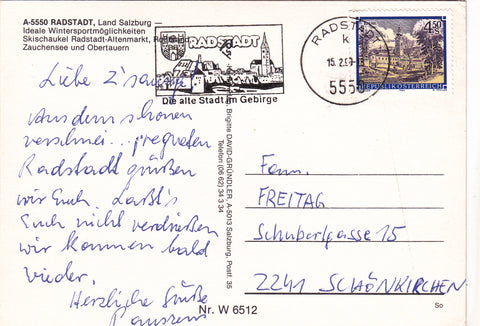 A-5550 RADSTADT, Land Salzburg —
Ideale Wintersportmöglichkeiten
Skischaukel Radstadt-Altenmarkt,
Zauchensee und Obertauern
RADSTADT
Die alte Stadt im Gebirge
RADSTADT
15. 2.
5550
4.50
REPUBLIK ÖSTERREICH
Liebe
Aus dem schönen
verschnei... pregneten
Radstadt grüßen
wir Euch. Laßt's
Euch nicht verdrießen
wir kommen bald
wieder.
Herzliche Grüße
Brigitte DAVID-GRÜNDLER, A-5033 Salzburg, Postf. 35
Telefon (06 62) 34 3 34
Fam.
FREITAG
Schubertgasse 15
2241 SCHÖNKIRCHEN
Nr. W 6512
So